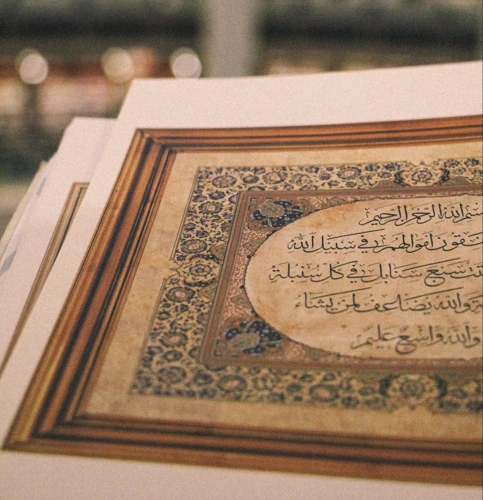 الله الرحمن الرحيم
اموالهم في سبيل الله
سبع سنابل في كل سنبلة
والله يضاعف لمن يشاء
والله واسع عليم